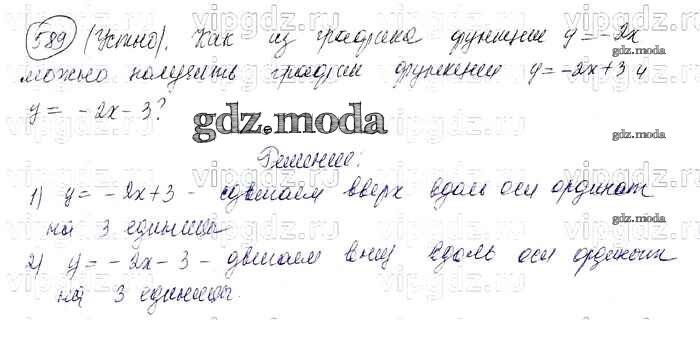 589 (Устно). Как из графика функции y = -2x
можно получить график функции y = -2x+3 и
y = -2x-3?
gdz.moda
Решение:
1) y = -2x+3 - сдвигаем вверх вдоль оси ординат
на 3 единицы
2) y = -2x-3 - двигаем вниз вдоль оси ординат
на 3 единицы.